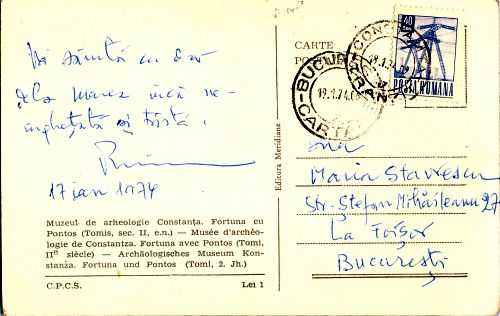 Vă sărută cu dor
de la marea încă ne-
înghețată și tristă.
17 ian 1974
Muzeul de arheologie Constanța. Fortuna cu
Pontos (Tomis, sec. II, e.n.) — Musée d'archéo-
logie de Constantza. Fortuna avec Pontos (Tomi,
IIe siècle) — Archäologisches Museum Kon-
stanža. Fortuna und Pontos (Tomi, 2. Jh.)
C.P.C.S. Lei 1
Editura Meridiane
CARTE
PO
BUCUR
CARTE
19.1.74
CONSTA
40
POSTA ROMANA
Maria Stavrescu
Str. Ștefan Mihăileanu 27
La Foișor
București